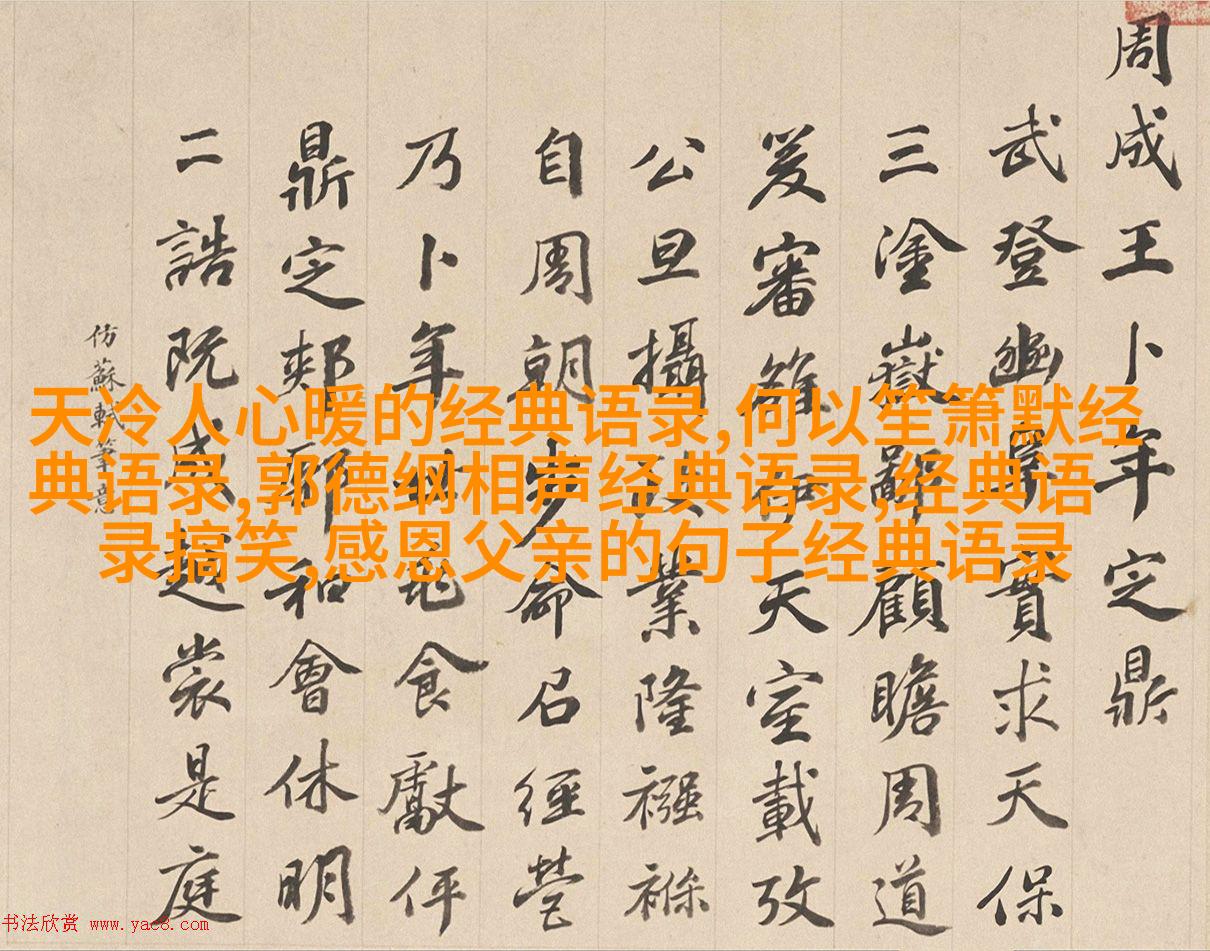 周成王卜年定鼎
武登豳阜實求天保
三塗嶽鄙顧瞻周道
爰審雒伊天室載攷
公旦攝政業隆襁褓
自周朝步命召經營
乃卜年世龜食獻伻
鼎定郟鄏和會休明
二誥既成越裳是庭
仿蘇軾筆意
天冷人心暖的经典语录,何以笙箫默经
典语录,郭德纲相声经典语录,经典语
录搞笑,感恩父亲的句子经典语录
书法欣赏 www.yac8.com